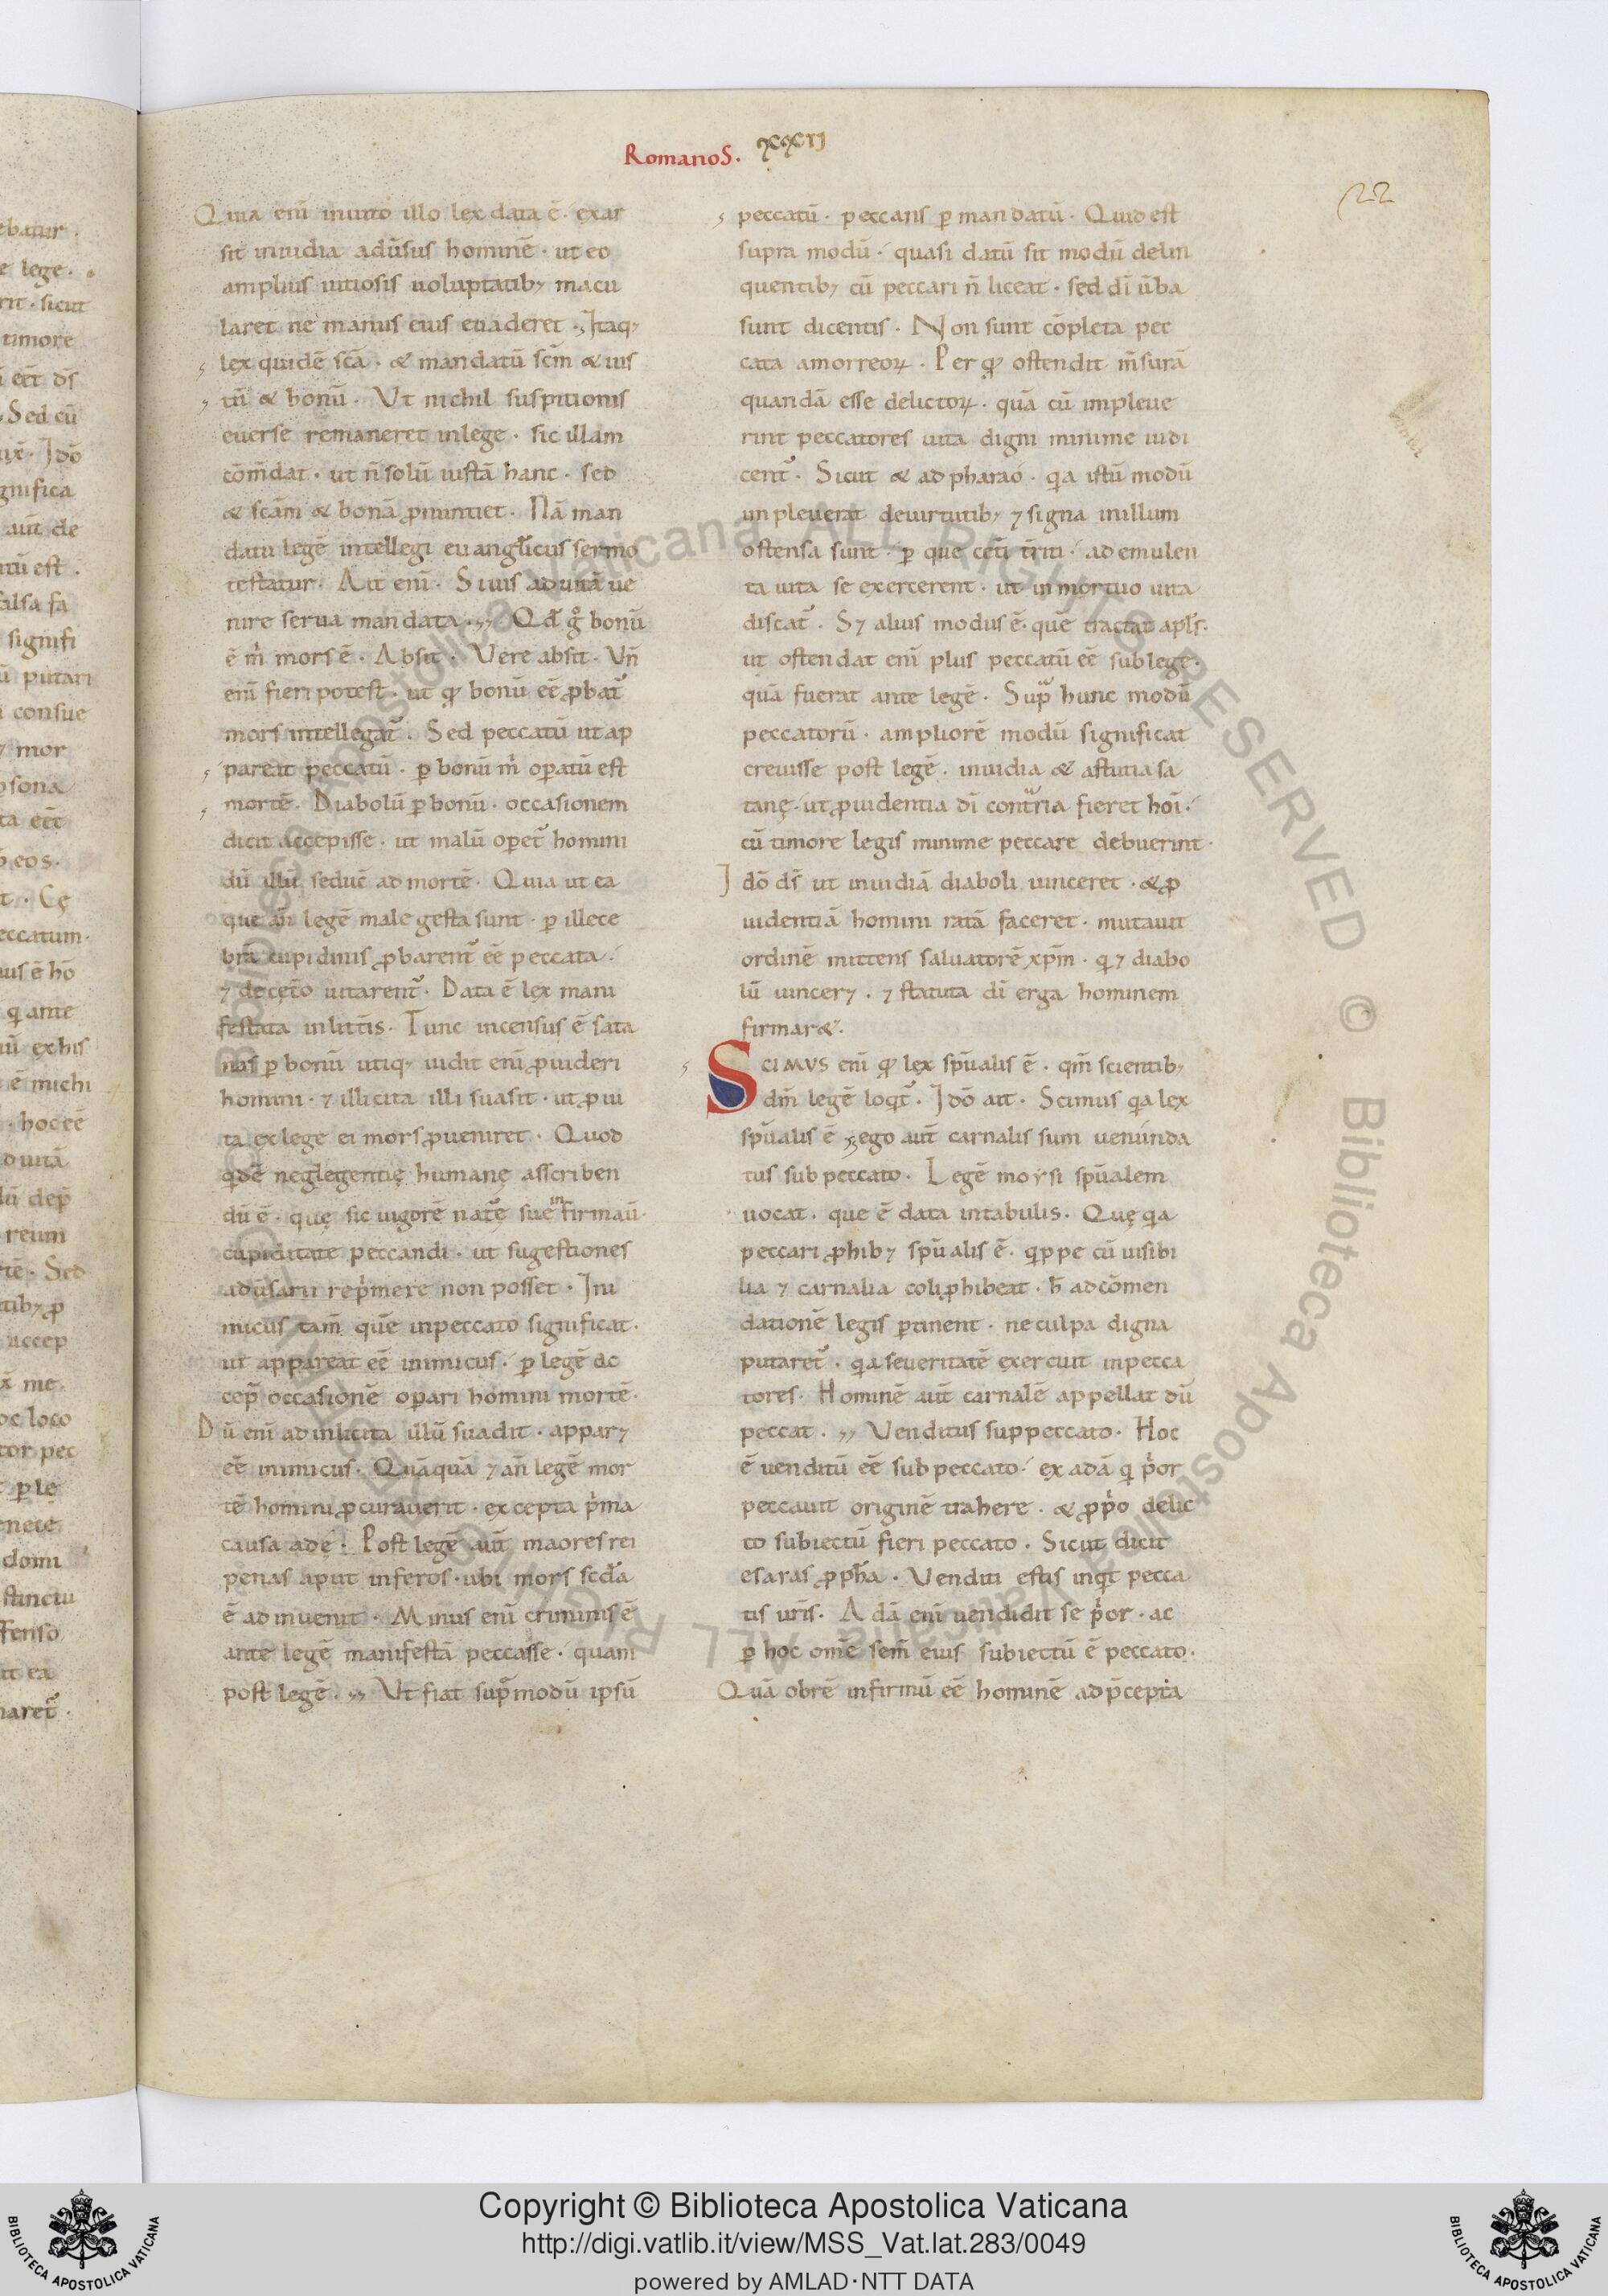 Romanos.
22
Quia enī inuito illo lex data ē. exar
sit inuidia adūsus hominē. ut eo
amplius uitiosis uoluptatibꝫ macu
laret ne manus eius euaderet. Itaqꝫ
lex quidē scā. & mandatū scm̄ & ius
tū & bonū. Vt nichil suspitionis
euerse remaneret inlege. sic illam
cōm̄dat. ut n̄ solū iustā hanc. sed
& scām & bonā ꝓnuntiet. Nā man
datū legē intellegi euanglicus sermo
testatur. Ait enī. Siuis aduitā ue
nire serua mandata. Qđ g̊ bonū
ē m̄ mors ē. Absit. Vere absit. Vn̄
enī fieri potest. ut qđ bonū eē ꝓbat᷑
mors intellegat᷑. Sed peccatū ut ap
pareat peccatū. ꝑ bonū m̄ oꝑatū est
mortē. Diabolū ꝑ bonū. occasionem
dicit accepisse. ut malū oꝑet᷑ homini
dū illū seduc̄ ad mortē. Quia ut ea
que an̄ legē male gesta sunt. ꝑ illece
brā cupidinis ꝓbarent᷑ eē peccata.
⁊ de cęt̄o uitarent᷑. Data ē lex mani
festata inlitt̄is. Tunc incensus ē sata
nas ꝑ bonū utiqꝫ uidit enī ꝓuideri
homini. ⁊ illicita illi suasit. ut ꝓ ui
ta ex lege ei mors ꝓueniret. Quod
qdē neglegentię humanę asscriben
dū ē. quę sic uigorē nat̄e sue infirmaū.
cupiditate peccandi. ut sugestiones
adūsarii rep̄mere non posset. Ini
micus tam̄ quē inpeccato significat.
ut appareat eē inimicus. ꝑ legē ac
cep̄ occasionē oꝑari homini mortē.
Dū enī ad inlicita illū suadit. apparꝫ
eē inimicus. Quāquā ⁊ an̄ legē mor
tē homini ꝓcurauerit. excepta p̄ma
causa adę. Post legē aūt maores rei
penas aput inferos. ubi mors scđa
ē adinuenit. Minus enī criminis ē
ante legē manifestā peccasse. quam
post legē. Vt fiat sup̄ modū ipsū
peccatū. peccans ꝑ mandatū. Quid est
supra modū. quasi datū sit modū delin
quentibꝫ cū peccari n̄ liceat. sed dī ūba
sunt dicentis. Non sunt cōpleta pec
cata amorreoꝝ. Per qđ ostendit m̄surā
quandā esse delictoꝝ. quā cū impleue
rint peccatores uita digni minime iudi
cent᷑. Sicut & ad pharaó. qa istū modū
inpleuerat deuirtutibꝫ ⁊ signa inillum
ostensa sunt. ꝑ que cet̄i t̄riti. ad emulen
ta uita se exercerent. ut in mortuo uita
discat᷑. Sꝫ alius modus ē. quē tractat apls̄.
ut ostendat enī plus peccatū eē sublege.
quā fuerat ante legē. Supᷓ hunc modū
peccatorū. ampliorē modū significat
creuisse post legē. inuidia & astutia sa
tanę. ut ꝓuidentia dī contᷓria fieret hoī.
cū timore legis minime peccare debuerint.
Idō ds̄ ut inuidiā diaboli uinceret. & ꝓ
uidentiā homini ratā faceret. mutauit
ordinē mittens saluatorē xp̄m. qi ⁊ diabo
lū uincerꝫ. ⁊ statuta dī erga hominem
firmar&.
SCIMVS enī qđ lex sp̄ualis ē. qm̄ scientibꝫ
dm̄ legē loqt᷑. Idō ait. Scimus qa lex
sp̄ualis ē ego aūt carnalis sum uenunda
tus sub peccato. Legē moysi sp̄ualem
uocat. que ē data intabulis. Quę qa
peccari ꝓhibꝫ sp̄ualis ē. qippe cū uisibi
lia ⁊ carnalia coli ꝓhibeat. h̄ adcōmen
dationē legis ꝑtinent. ne culpa digna
putaret᷑. qa seueritatē exercuit inpecca
tores. Hominē aūt carnalē appellat dū
peccat. Venditus suppeccato. Hoc
ē uenditū eē sub peccato. ex adā qi p̄or
peccauit originē trahere. & ꝓp̄o delic
to subiectū fieri peccato. Sicut dicit
esaias ꝓph̄a. Venditi estis inqt pecca
tis ur̄is. Adā enī uendidit se p̄or. ac
ꝑ hoc om̄e sem̄ eius subiectū ē peccato.
Quā obrē infirmū eē hominē ad p̄cepta
Copyright © Biblioteca Apostolica Vaticana
http://digi.vatlib.it/view/MSS_Vat.lat.283/0049
powered by AMLAD·NTT DATA
BIBLIOTECA APOSTOLICA VATICANA
BIBLIOTECA APOSTOLICA VATICANA